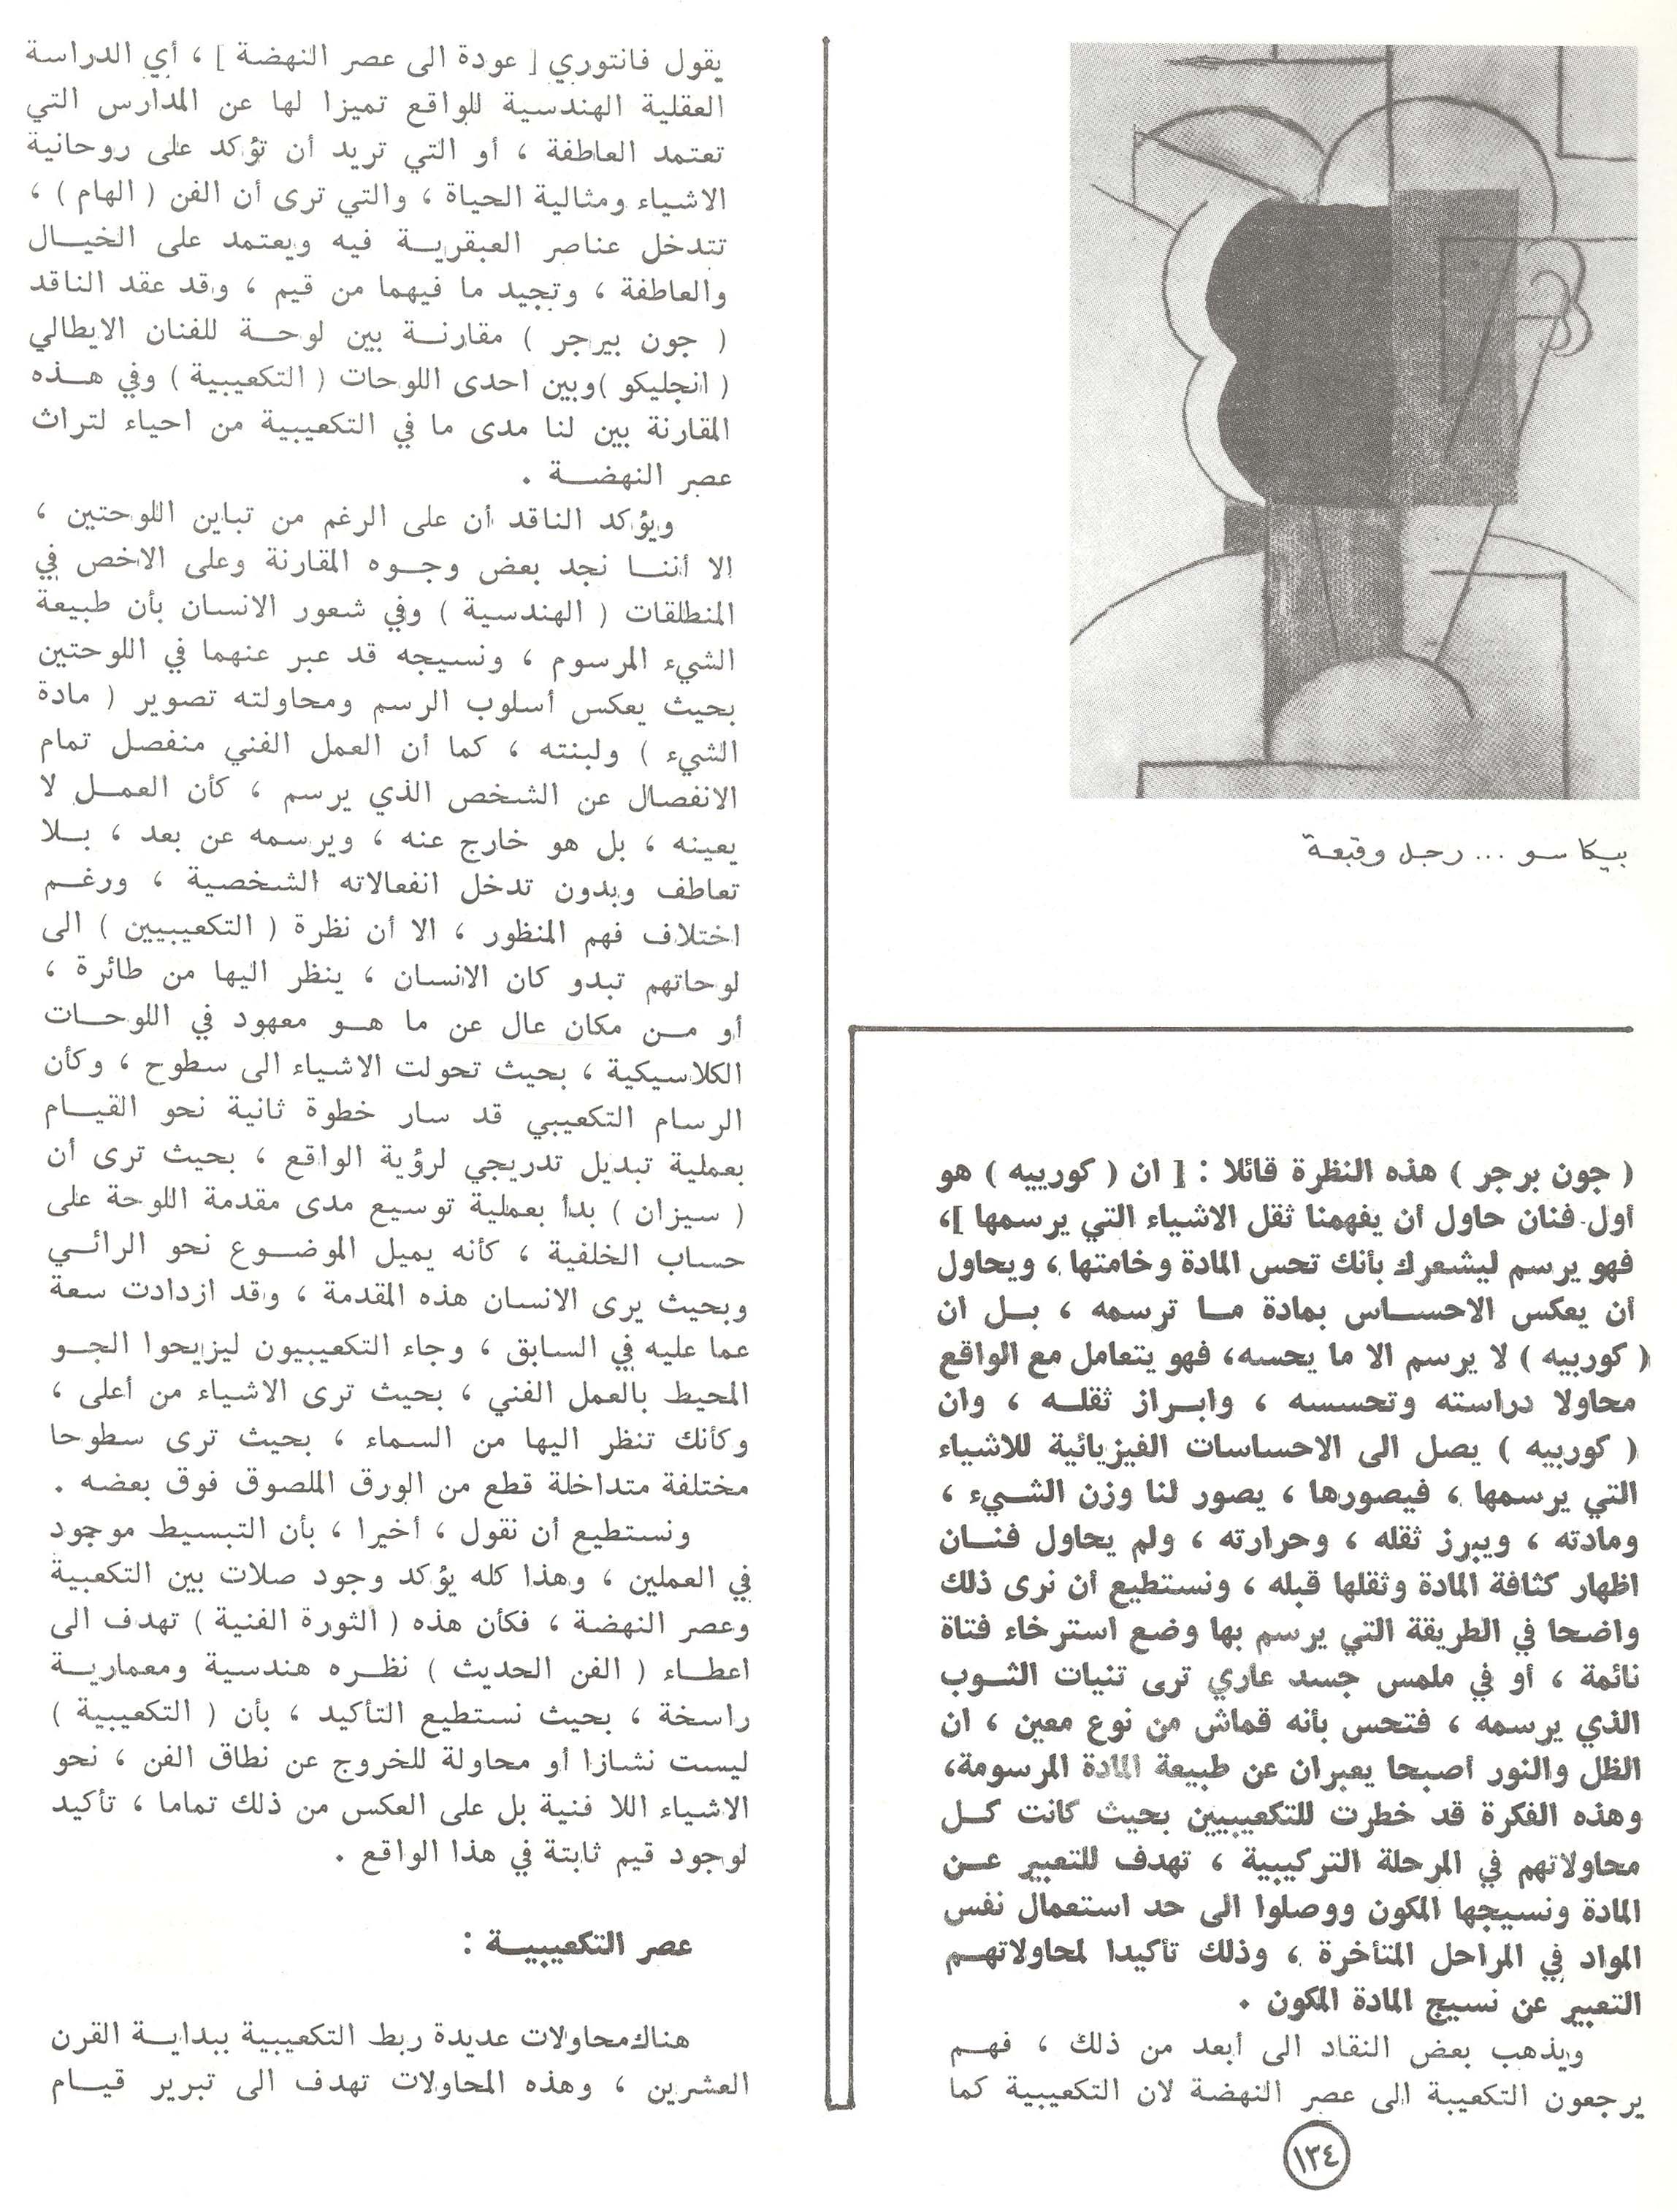 بيكاسو ... رجل وقبعة
( جون برجر ) هذه النظرة قائلا : [ ان ( كورييه ) هو
أول فنان حاول أن يفهمنا ثقل الاشياء التي يرسمها ]،
فهو يرسم ليشعرك بأنك تحس المادة وخامتها ، ويحاول
أن يعكس الاحســاس بمادة مــا ترسمه ، بــل ان
( كوربيه ) لا يرسم الا ما يحسه، فهو يتعامل مع الواقع
محاولا دراسته وتحسسه ، وابــراز ثقلــه ، وان
( كوربيه ) يصل الى الاحساسات الفيزيائية للاشياء
التي يرسمها ، فيصورها ، يصور لنا وزن الشــيء ،
ومادته ، ويبرز ثقله ، وحرارته ، ولم يحاول فنــان
اظهار كثافة المادة وثقلها قبله ، ونستطيع أن نرى ذلك
واضحا في الطريقة التي يرسم بها وضع استرخاء فتاة
نائمة ، أو في ملمس جسد عاري ترى ثنيات الثــوب
الذي يرسمه ، فتحس بأنه قماش من نوع معين ، ان
الظل والنور أصبحا يعبران عن طبيعة المادة المرسومة،
وهذه الفكرة قد خطرت للتكعيبيين بحيث كانت كــل
محاولاتهم في المرحلة التركيبية ، تهدف للتعبير عــن
المادة ونسيجها المكون ووصلوا الى حد استعمال نفس
المواد في المراحل المتأخرة ، وذلك تأكيدا لمحاولاتهــم
التعبير عن نسيج المادة المكون .
ويذهب بعض النقاد الى أبعد من ذلك ، فهــم
يرجعون التكعيبة الى عصر النهضة لان التكعيبية كما
يقول فانتوري [ عودة الى عصر النهضة ] ، أي الدراسة
العقلية الهندسية للواقع تميزا لها عن المدارس التي
تعتمد العاطفة ، أو التي تريد أن تؤكد على روحانية
الاشياء ومثالية الحياة ، والتي ترى أن الفن ( الهام ) ،
تتدخل عناصر العبقريــة فيه ويعتمد على الخيــال
والعاطفة ، وتجيد ما فيهما من قيم ، وقد عقد الناقد
( جون بيرجر ) مقارنــة بين لوحــة للفنان الايطالي
( انجليكو )وبين احدى اللوحات ( التكعيبية ) وفي هــذه
المقارنة بين لنا مدى ما في التكعيبية من احياء لتراث
عصر النهضــة .
ويؤكد الناقد أن على الرغم من تباين اللوحتين ،
الا أننــا نجد بعض وجــوه المقارنة وعلى الاخص في
المنطلقات ( الهندسية ) وفي شعور الانسان بأن طبيعة
الشيء المرسوم ، ونسيجه قد عبر عنهما في اللوحتين
بحيث يعكس أسلوب الرسم ومحاولته تصوير ( مادة
الشيء ) ولبنته ، كما أن العمل الفني منفصل تمام
الانفصال عن الشخص الذي يرسم ، كأن العمــل لا
يعينه ، بل هو خارج عنه ، ويرسمه عن بعد ، بــلا
تعاطف وبدون تدخل انفعالاته الشخصية ، ورغــم
اختلاف فهم المنظور ، الا أن نظرة ( التكعيبيين ) الى
لوحاتهم تبدو كان الانسان ، ينظر اليها من طائرة ،
أو مــن مكان عال عن ما هــو معهود في اللوحــات
الكلاسيكية ، بحيث تحولت الاشياء الى سطوح ، وكأن
الرسام التكعيبي قد سار خطوة ثانية نحو القيــام
بعملية تبديل تدريجي لرؤية الواقع ، بحيث ترى أن
( سيزان ) بدأ بعملية توسيع مدى مقدمة اللوحة على
حساب الخلفية ، كأنه يميل الموضــوع نحو الرائــي
وبحيث يرى الانسان هذه المقدمة ، وقد ازدادت سعة
عما عليه في السابق ، وجاء التكعيبيون ليزيحوا الجــو
المحيط بالعمل الفني ، بحيث ترى الاشياء من أعلى ،
وكأنك تنظر اليها من السماء ، بحيث ترى سطوحا
مختلفة متداخلة قطع من الورق الملصوق فوق بعضه .
ونستطيع أن نقول ، أخيرا ، بأن التبسيط موجود
في العملين ، وهذا كله يؤكد وجود صلات بين التكعبية
وعصر النهضة ، فكأن هذه ( الثورة الفنية ) تهدف الى
اعطــاء ( الفن الحديث ) نظــره هندسية ومعماريــة
راسخة ، بحيث نستطيع التأكيد ، بأن ( التكعيبية )
ليست نشازا أو محاولة للخروج عن نطاق الفن ، نحو
الاشياء اللا فنية بل على العكس من ذلك تماما ، تأكيد
لوجود قيم ثابتة في هذا الواقع .
عصر التكعيبيــة :
هناك محاولات عديدة ربط التكعيبية ببدايــة القرن
العشرين ، وهذه المحاولات تهدف الى تبرير قيــام
١٣٤